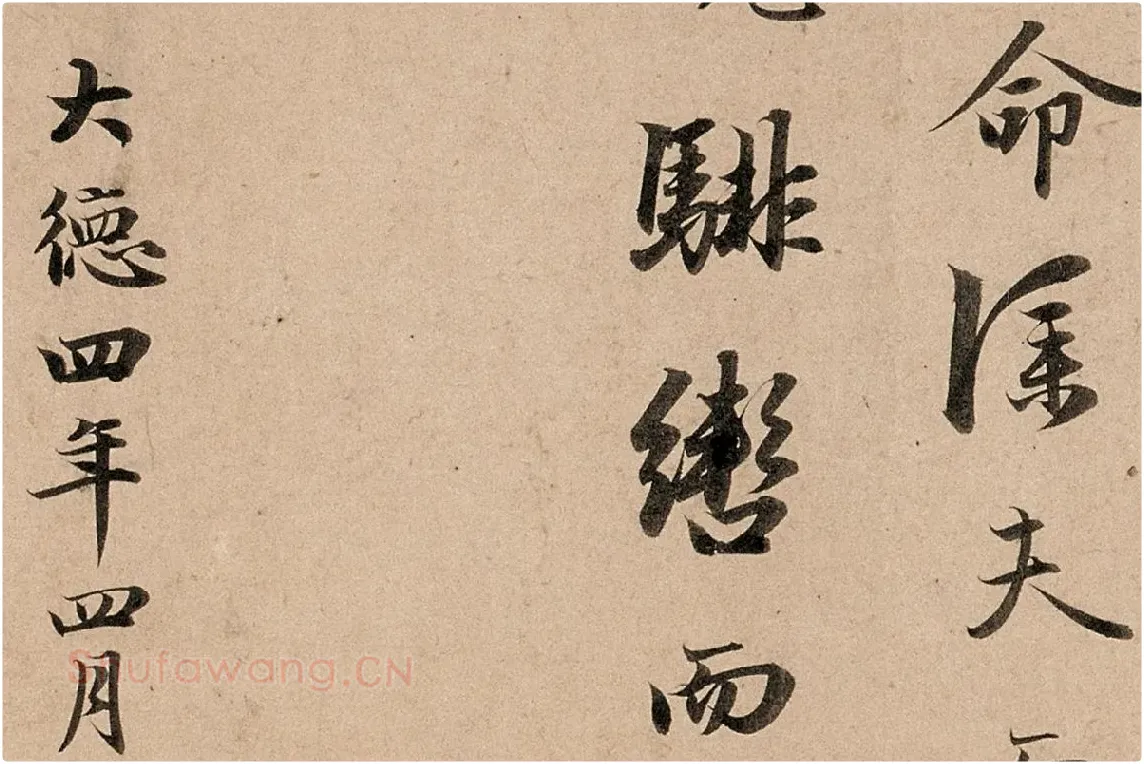 命僕夫
騑轡而
大德四年四月
Shufawang.CN